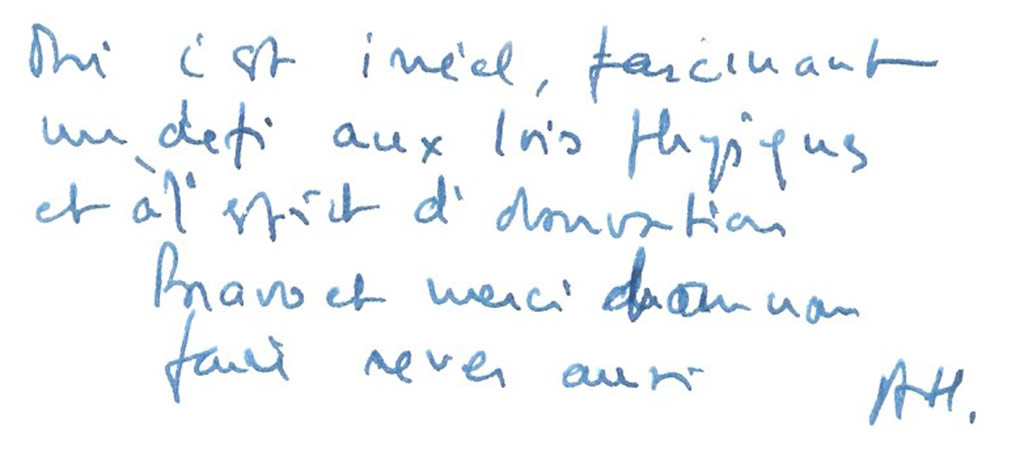 Oui c'est irréel, fascinant
un defi aux lois physiques
et à l'esprit d'observation
Bravo et merci de nous
faire rever aussi A.H.